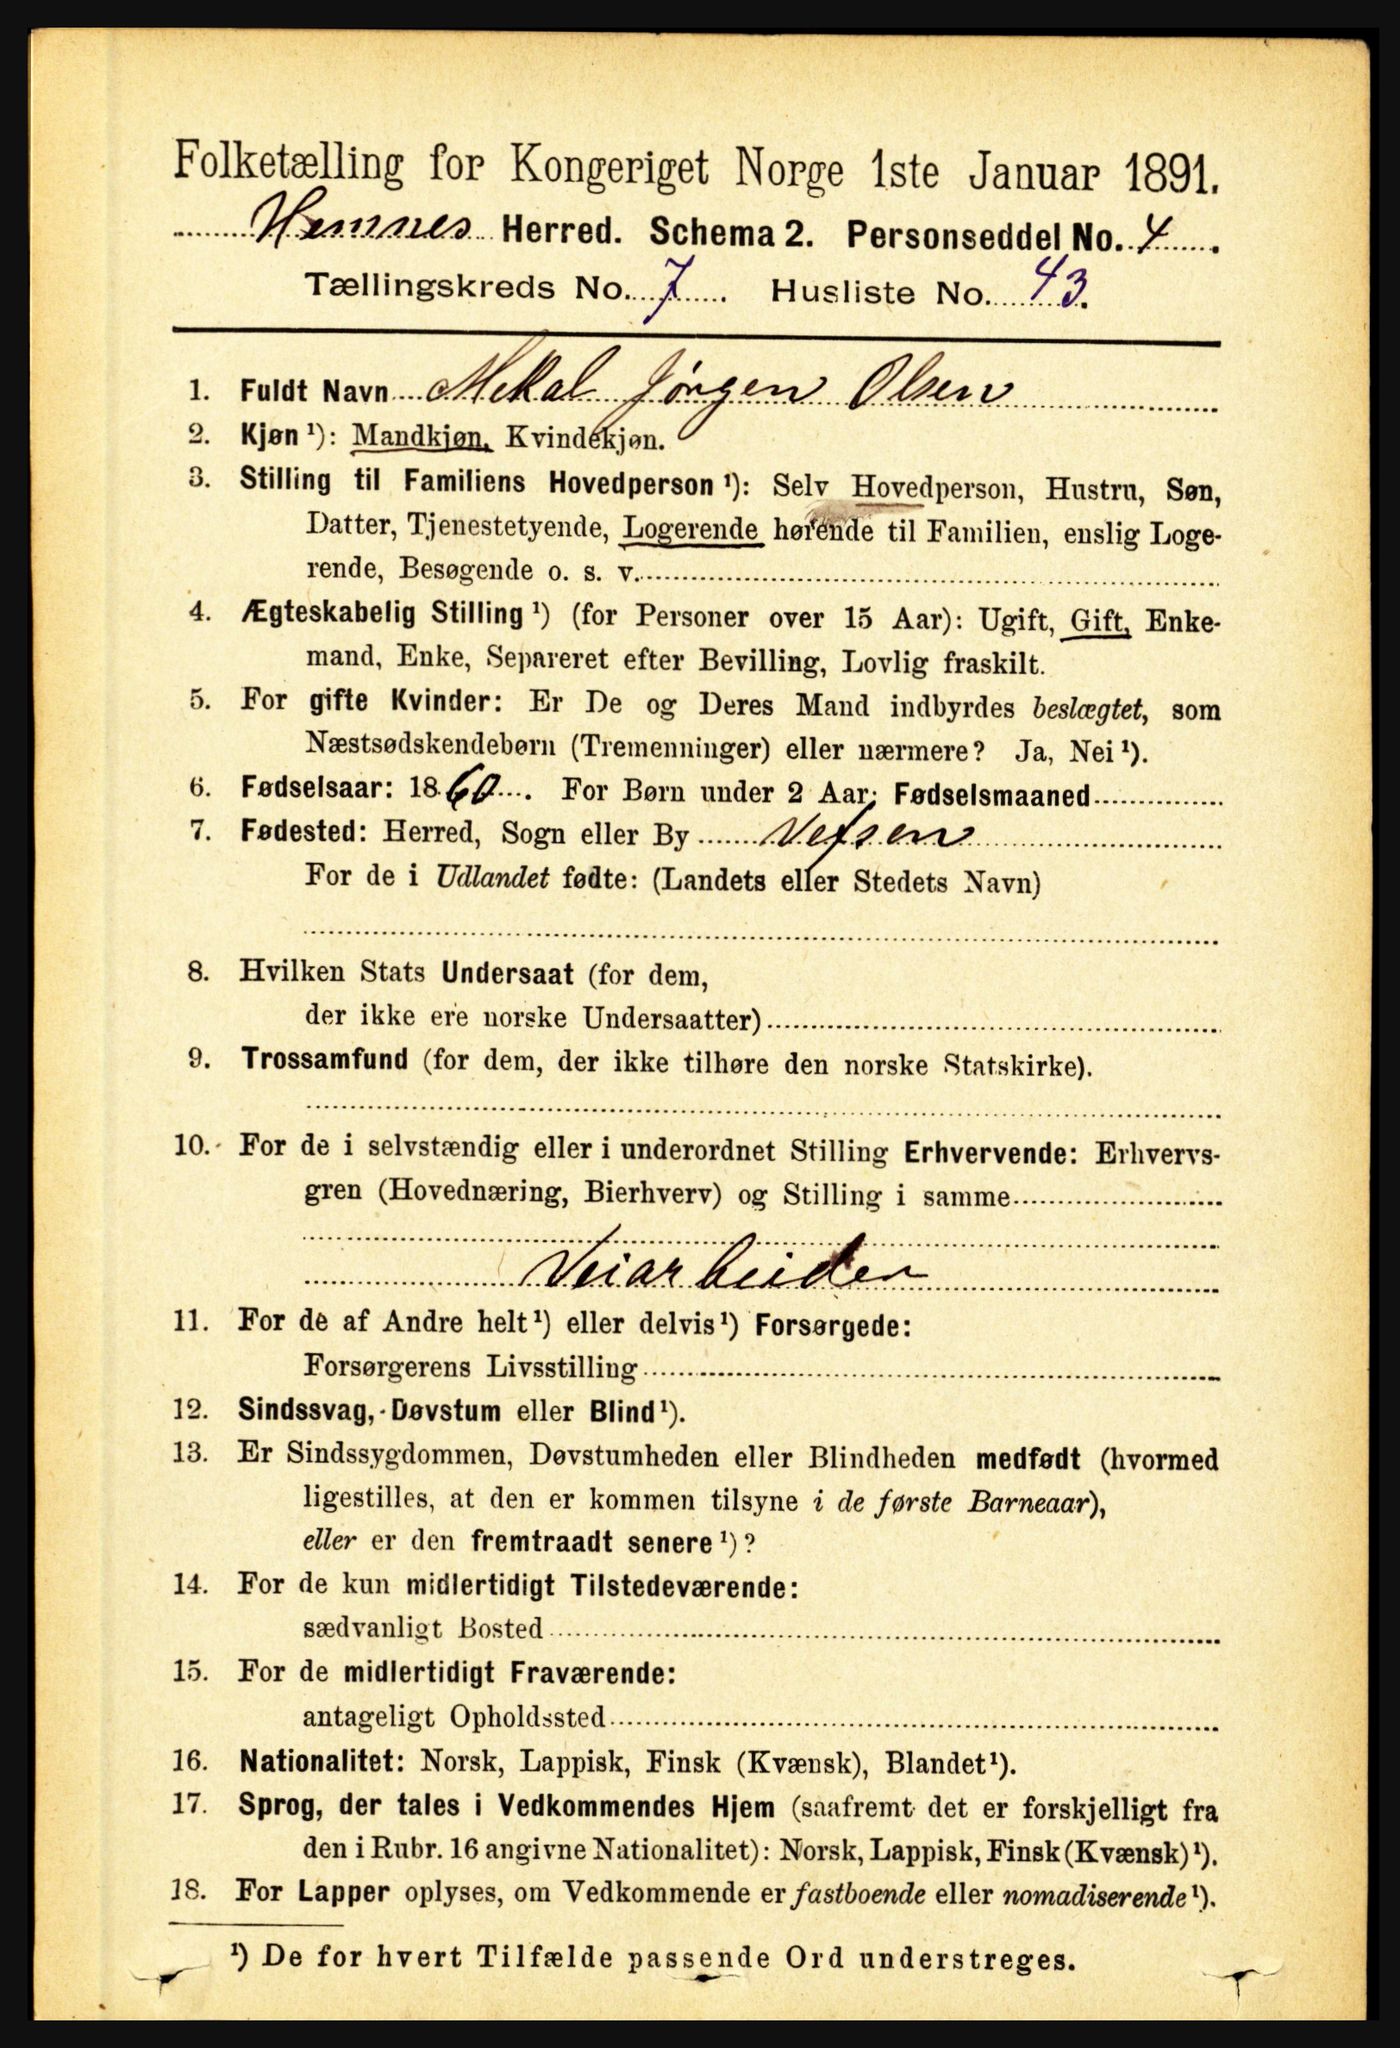 Folketælling for Kongeriget Norge 1ste Januar 1891.
Hemnes Herred. Schema 2. Personseddel No. 4.
Tællingskreds No. 7. Husliste No. 43.
1. Fuldt Navn Mekal Jørgen Olsen
2. Kjøn ¹): Mandkjøn, Kvindekjøn.
3. Stilling til Familiens Hovedperson ¹): Selv Hovedperson, Hustru, Søn,
Datter, Tjenestetyende, Logerende hørende til Familien, enslig Loge-
rende, Besøgende o. s. v.
4. Ægteskabelig Stilling ¹) (for Personer over 15 Aar): Ugift, Gift, Enke-
mand, Enke, Separeret efter Bevilling, Lovlig fraskilt.
5. For gifte Kvinder: Er De og Deres Mand indbyrdes beslægtet, som
Næstsødskendebørn (Tremenninger) eller nærmere? Ja, Nei ¹).
6. Fødselsaar: 1860. For Børn under 2 Aar: Fødselsmaaned
7. Fødested: Herred, Sogn eller By Vefsen
For de i Udlandet fødte: (Landets eller Stedets Navn)
8. Hvilken Stats Undersaat (for dem,
der ikke ere norske Undersaatter)
9. Trossamfund (for dem, der ikke tilhøre den norske Statskirke).
10. For de i selvstændig eller i underordnet Stilling Erhvervende: Erhvervs-
gren (Hovednæring, Bierhverv) og Stilling i samme
Veiarbeider
11. For de af Andre helt ¹) eller delvis ¹) Forsørgede:
Forsørgerens Livsstilling
12. Sindssvag, Døvstum eller Blind ¹).
13. Er Sindssygdommen, Døvstumheden eller Blindheden medfødt (hvormed
ligestilles, at den er kommen tilsyne i de første Barneaar),
eller er den fremtraadt senere ¹)?
14. For de kun midlertidigt Tilstedeværende:
sædvanligt Bosted
15. For de midlertidigt Fraværende:
antageligt Opholdssted
16. Nationalitet: Norsk, Lappisk, Finsk (Kvænsk), Blandet ¹).
17. Sprog, der tales i Vedkommendes Hjem (saafremt det er forskjelligt fra
den i Rubr. 16 angivne Nationalitet): Norsk, Lappisk, Finsk (Kvænsk) ¹).
18. For Lapper oplyses, om Vedkommende er fastboende eller nomadiserende ¹).
¹) De for hvert Tilfælde passende Ord understreges.